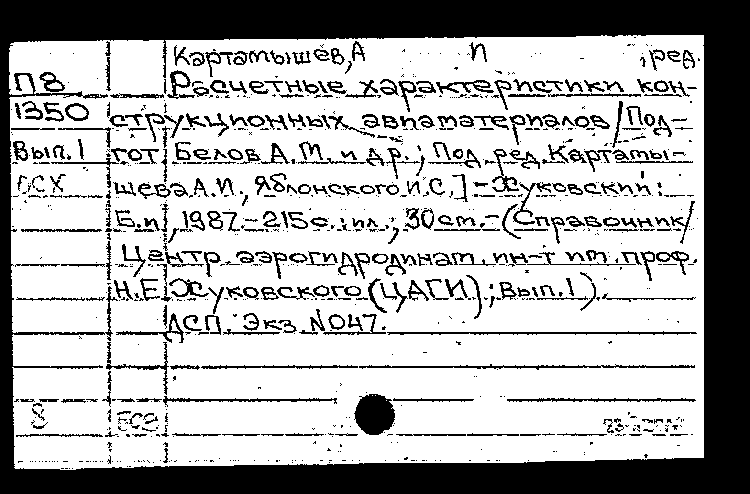 Картамышев, А И , ред.
П8 Расчетные характеристики кон-
1350 струкционных авиаматериалов / Под-
Вып. 1 гот. Белов А.М. и др.; Под ред. Картамы-
ОСХ шева А.И., Яблонского И.С.] - Жуковский:
Б.и, 1987. - 215 с.: ил.; 30 см. - (Справочник /
Центр. аэрогидродинам. ин-т им. проф.
Н.Е. Жуковского (ЦАГИ); Вып. 1).
ДСП. Экз. N 047.
8 БСО